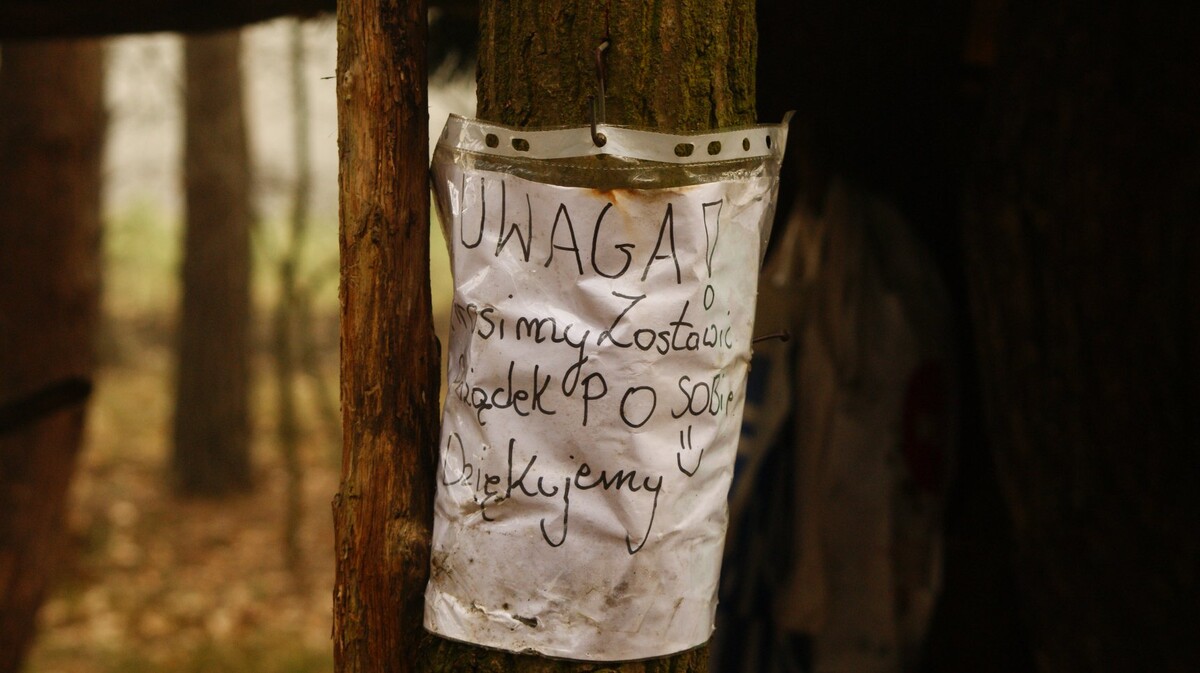 UWAGA!
Prosimy Zostawić
Pożądek PO SOBie
Dziękujemy